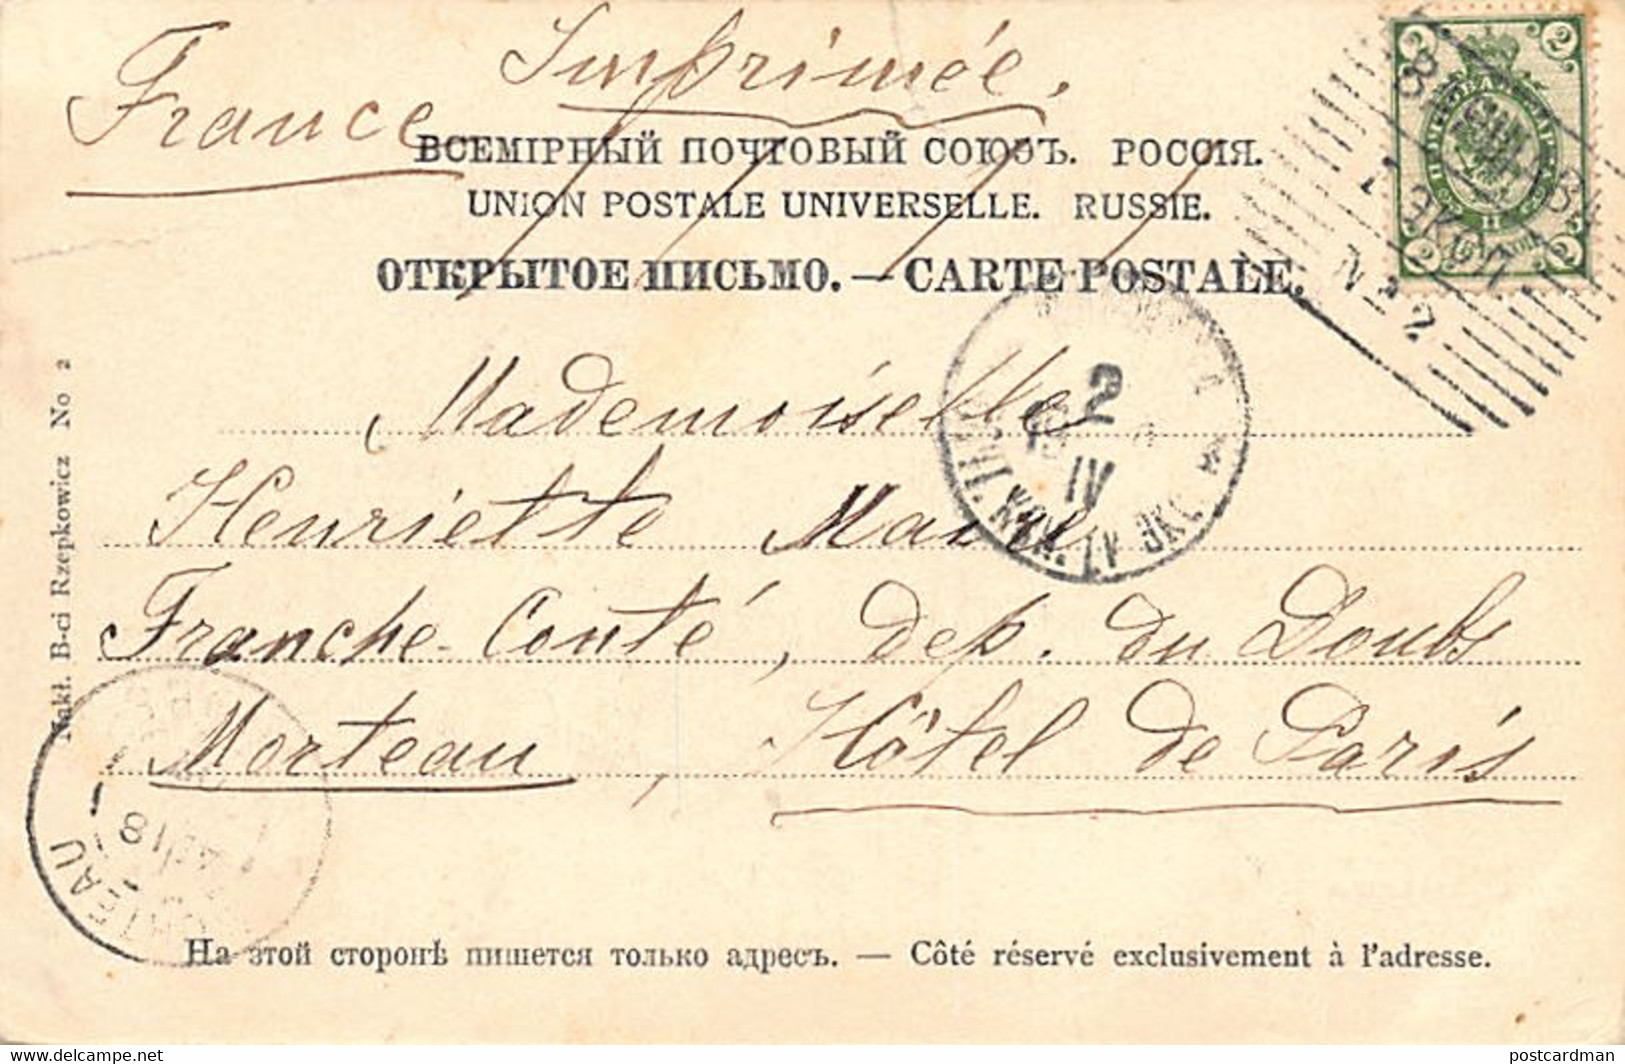 France
Imprimée.
ВСЕМІРНЫЙ ПОЧТОВЫЙ СОЮЗЪ. РОССІЯ.
UNION POSTALE UNIVERSELLE. RUSSIE.
ОТКРЫТОЕ ПИСЬМО. — CARTE POSTALE.
2 2
2 2
№ 2
2
IV
Mademoiselle
Henriette Maire
Franche-Conté, dep. du Doubs
Morteau, Hôtel de Paris
Nakł. B-ci Rzepkowicz No 2
На этой сторонѣ пишется только адресъ. — Côté réservé exclusivement à l'adresse.
https://www.delcampe.net
postcardman